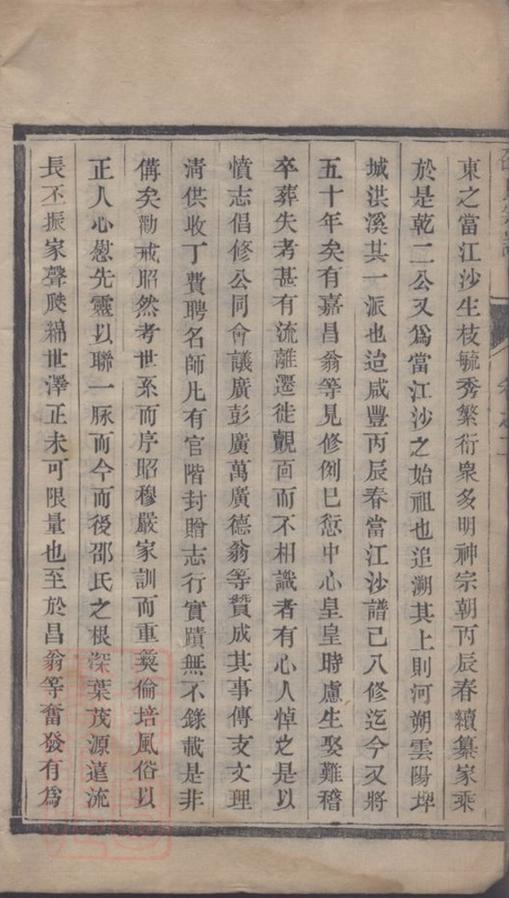 東之當江沙生枝毓秀繁衍衆多明神宗朝丙辰春續纂家乘
於是乾二公又爲當江沙之始祖也追溯其上則河朔雲陽埤
城洪溪其一派也迨咸豐丙辰春當江沙譜已八修迄今又將
五十年矣有嘉昌翁等見修例已愆中心皇皇時慮生娶難稽
卒葬失考甚有流離遷徙覿面而不相識者有心人悼之是以
憤志倡修公同會議廣彭廣萬廣德翁等贊成其事傳支文理
淸供收丁費聘名師凡有官階封贈志行實蹟無不錄載是非
備矣勸戒昭然考世系而序昭穆嚴家訓而重彛倫培風俗以
正人心慰先靈以聯一脉而今而後邵氏之根深葉茂源遠流
長丕振家聲緜世澤正未可限量也至於昌翁等奮發有爲